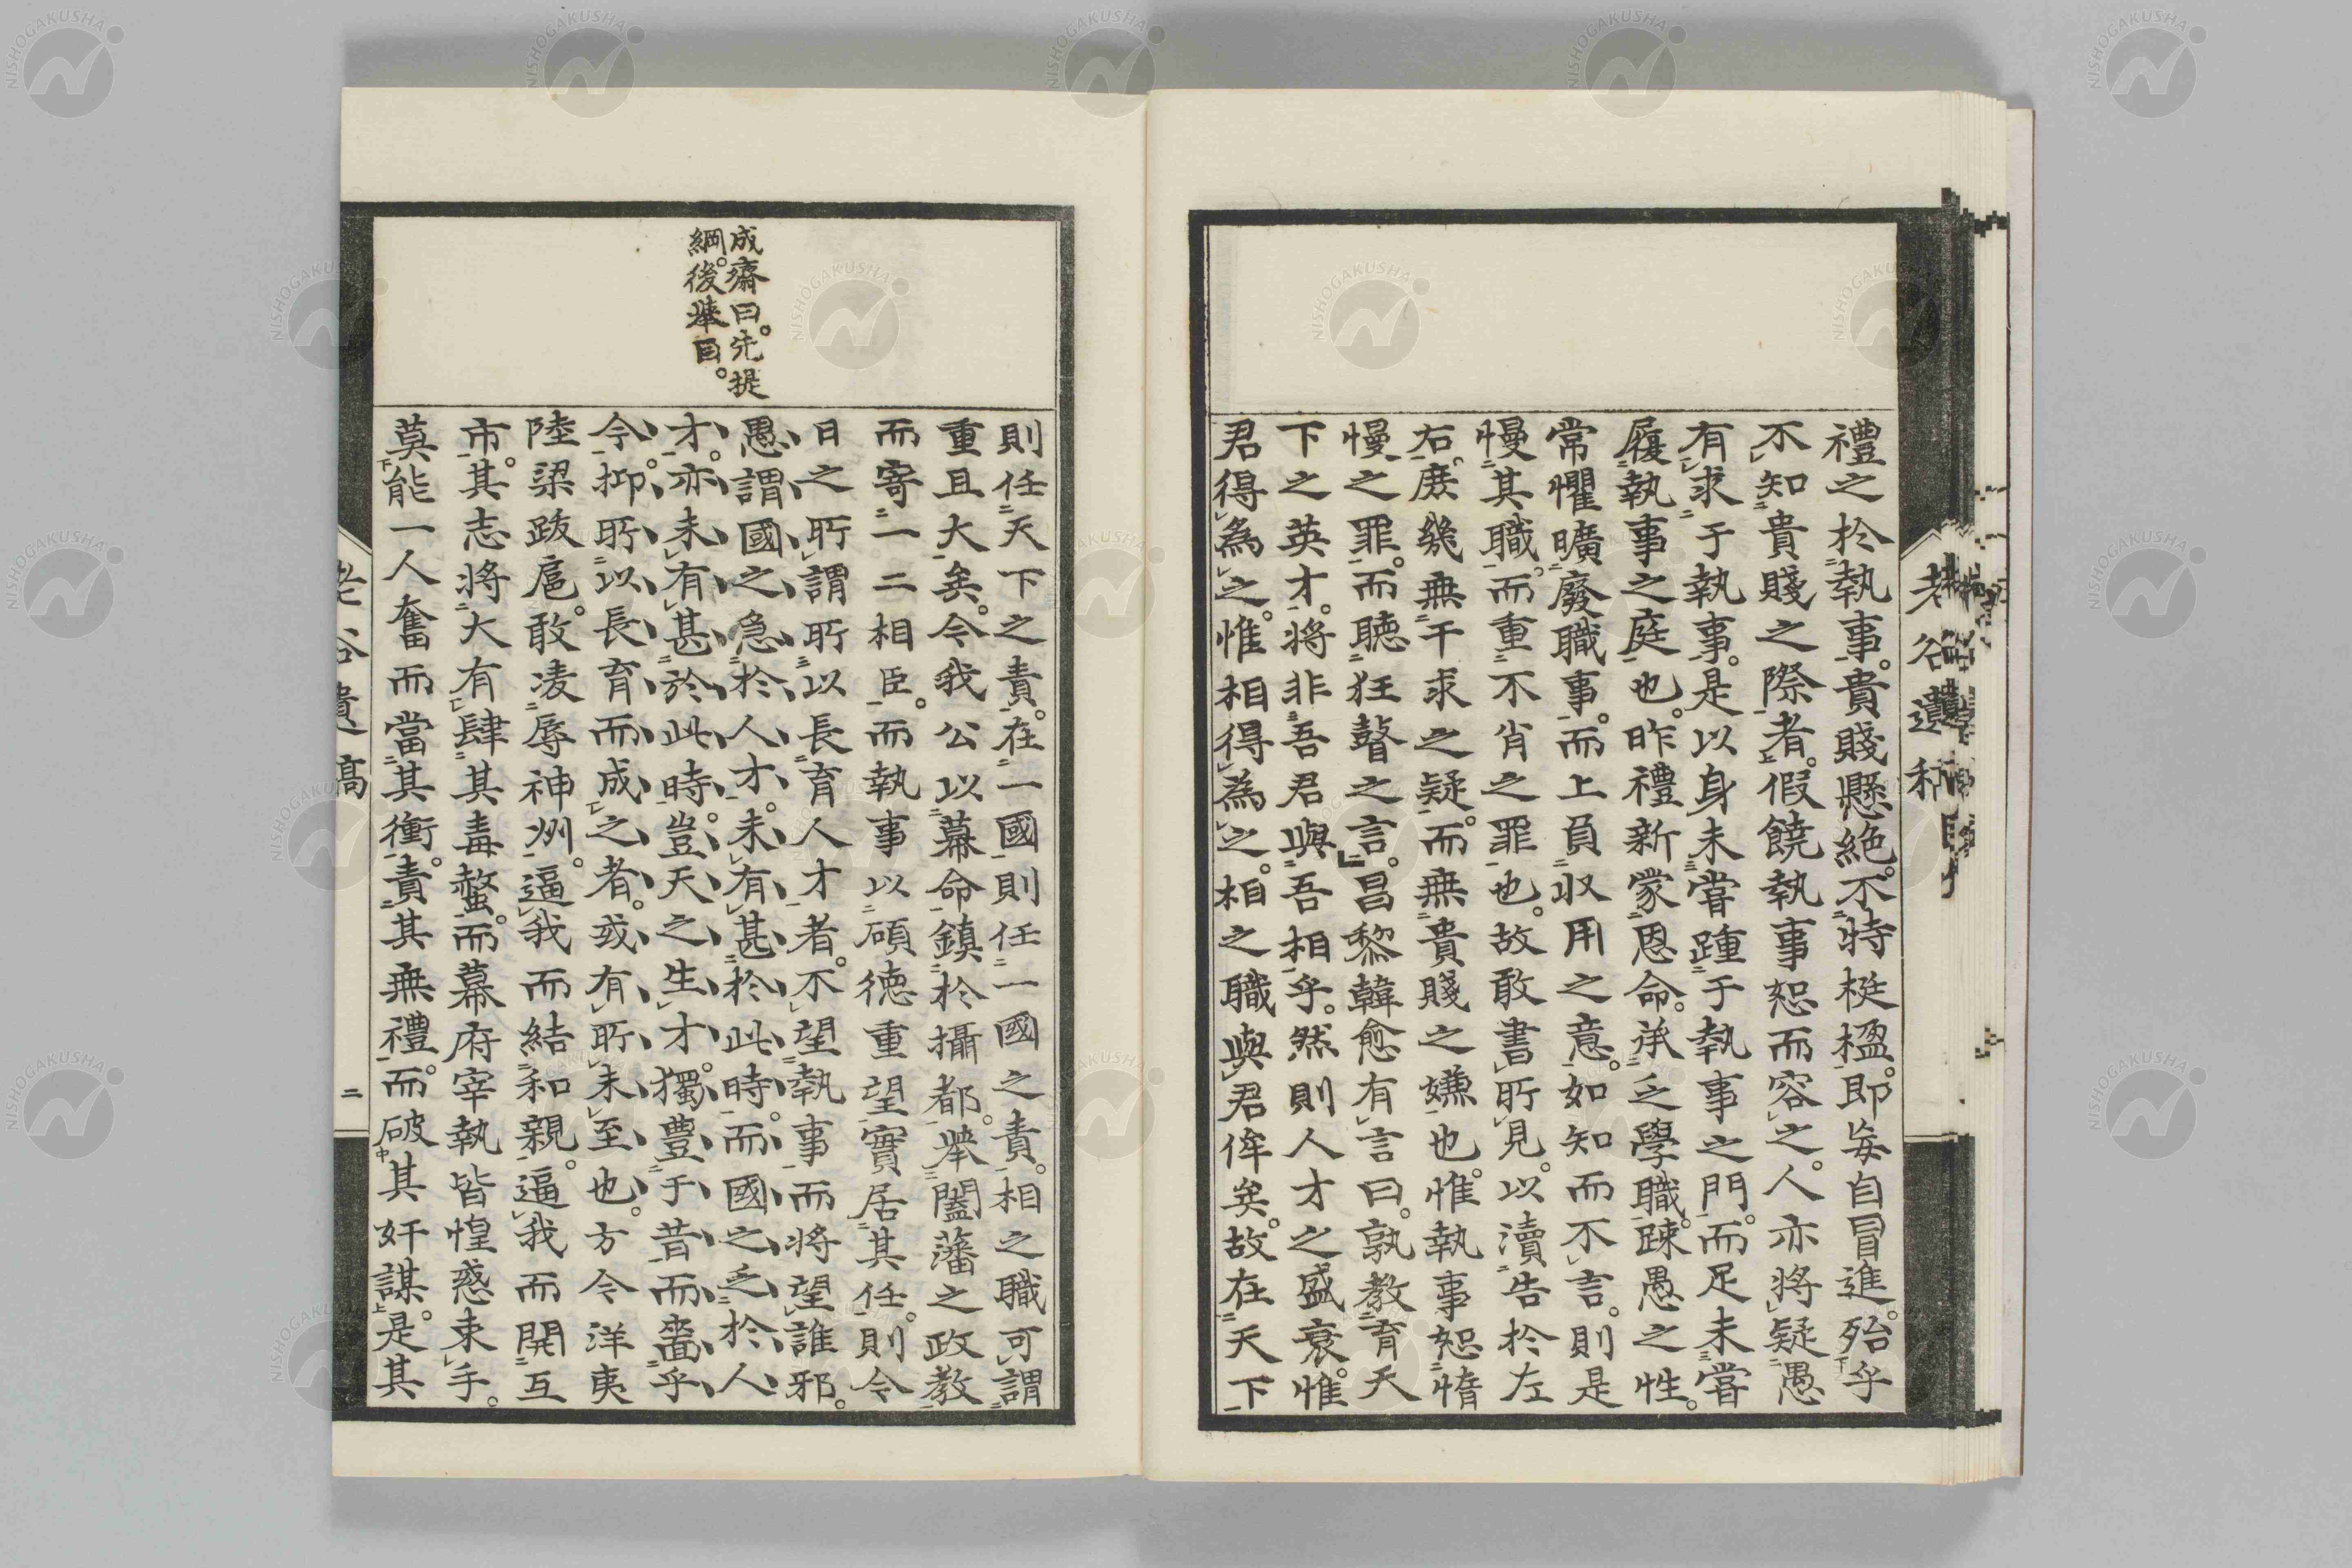 禮之於執事。貴賤懸絶。不特梃楹。卽每自冒進。殆乎
不知貴賤之際者。假饒執事恕而容之。人亦將疑愚
有求于執事。是以身未嘗踵于執事之門。而足未嘗
履執事之庭也。昨禮新蒙恩命。承乏學職。踈愚之性。
常懼曠廢職事。而上負收用之意。如知而不言。則是
慢其職。而重不肖之罪也。故敢書所見。以瀆告於左
右。庶幾無干求之疑。而無貴賤之嫌也。惟執事恕惰
慢之罪。而聽狂瞽之言。昌黎韓愈有言曰。孰教育天
下之英才。將非吾君與吾相乎。然則人才之盛衰。惟
君得爲之。惟相得爲之。相之職與君侔矣。故在天下
則任天下之責。在一國則任一國之責。相之職可謂
重且大矣。今我公以幕命鎮於攝都。擧闔藩之政教
而寄一二相臣。而執事以碩德重望實居其任。則今
日之所謂所以長育人才者。不望執事而將望誰邪。
愚謂國之急於人才。未有甚於此時。而國之乏於人
才。亦未有甚於此時。豈天之生才。獨豊于昔而嗇乎
今。抑所以長育而成之者。或有所未至也。方今洋夷
陸梁跋扈。敢凌辱神州。逼我而結和親。逼我而開互
市。其志將大有肆其毒螫。而幕府宰執皆惶惑束手。
莫能一人奮而當其衝。責其無禮。而破其奸謀。是其
成齋曰。先提
綱。後擧目。
老谷遺稿
二